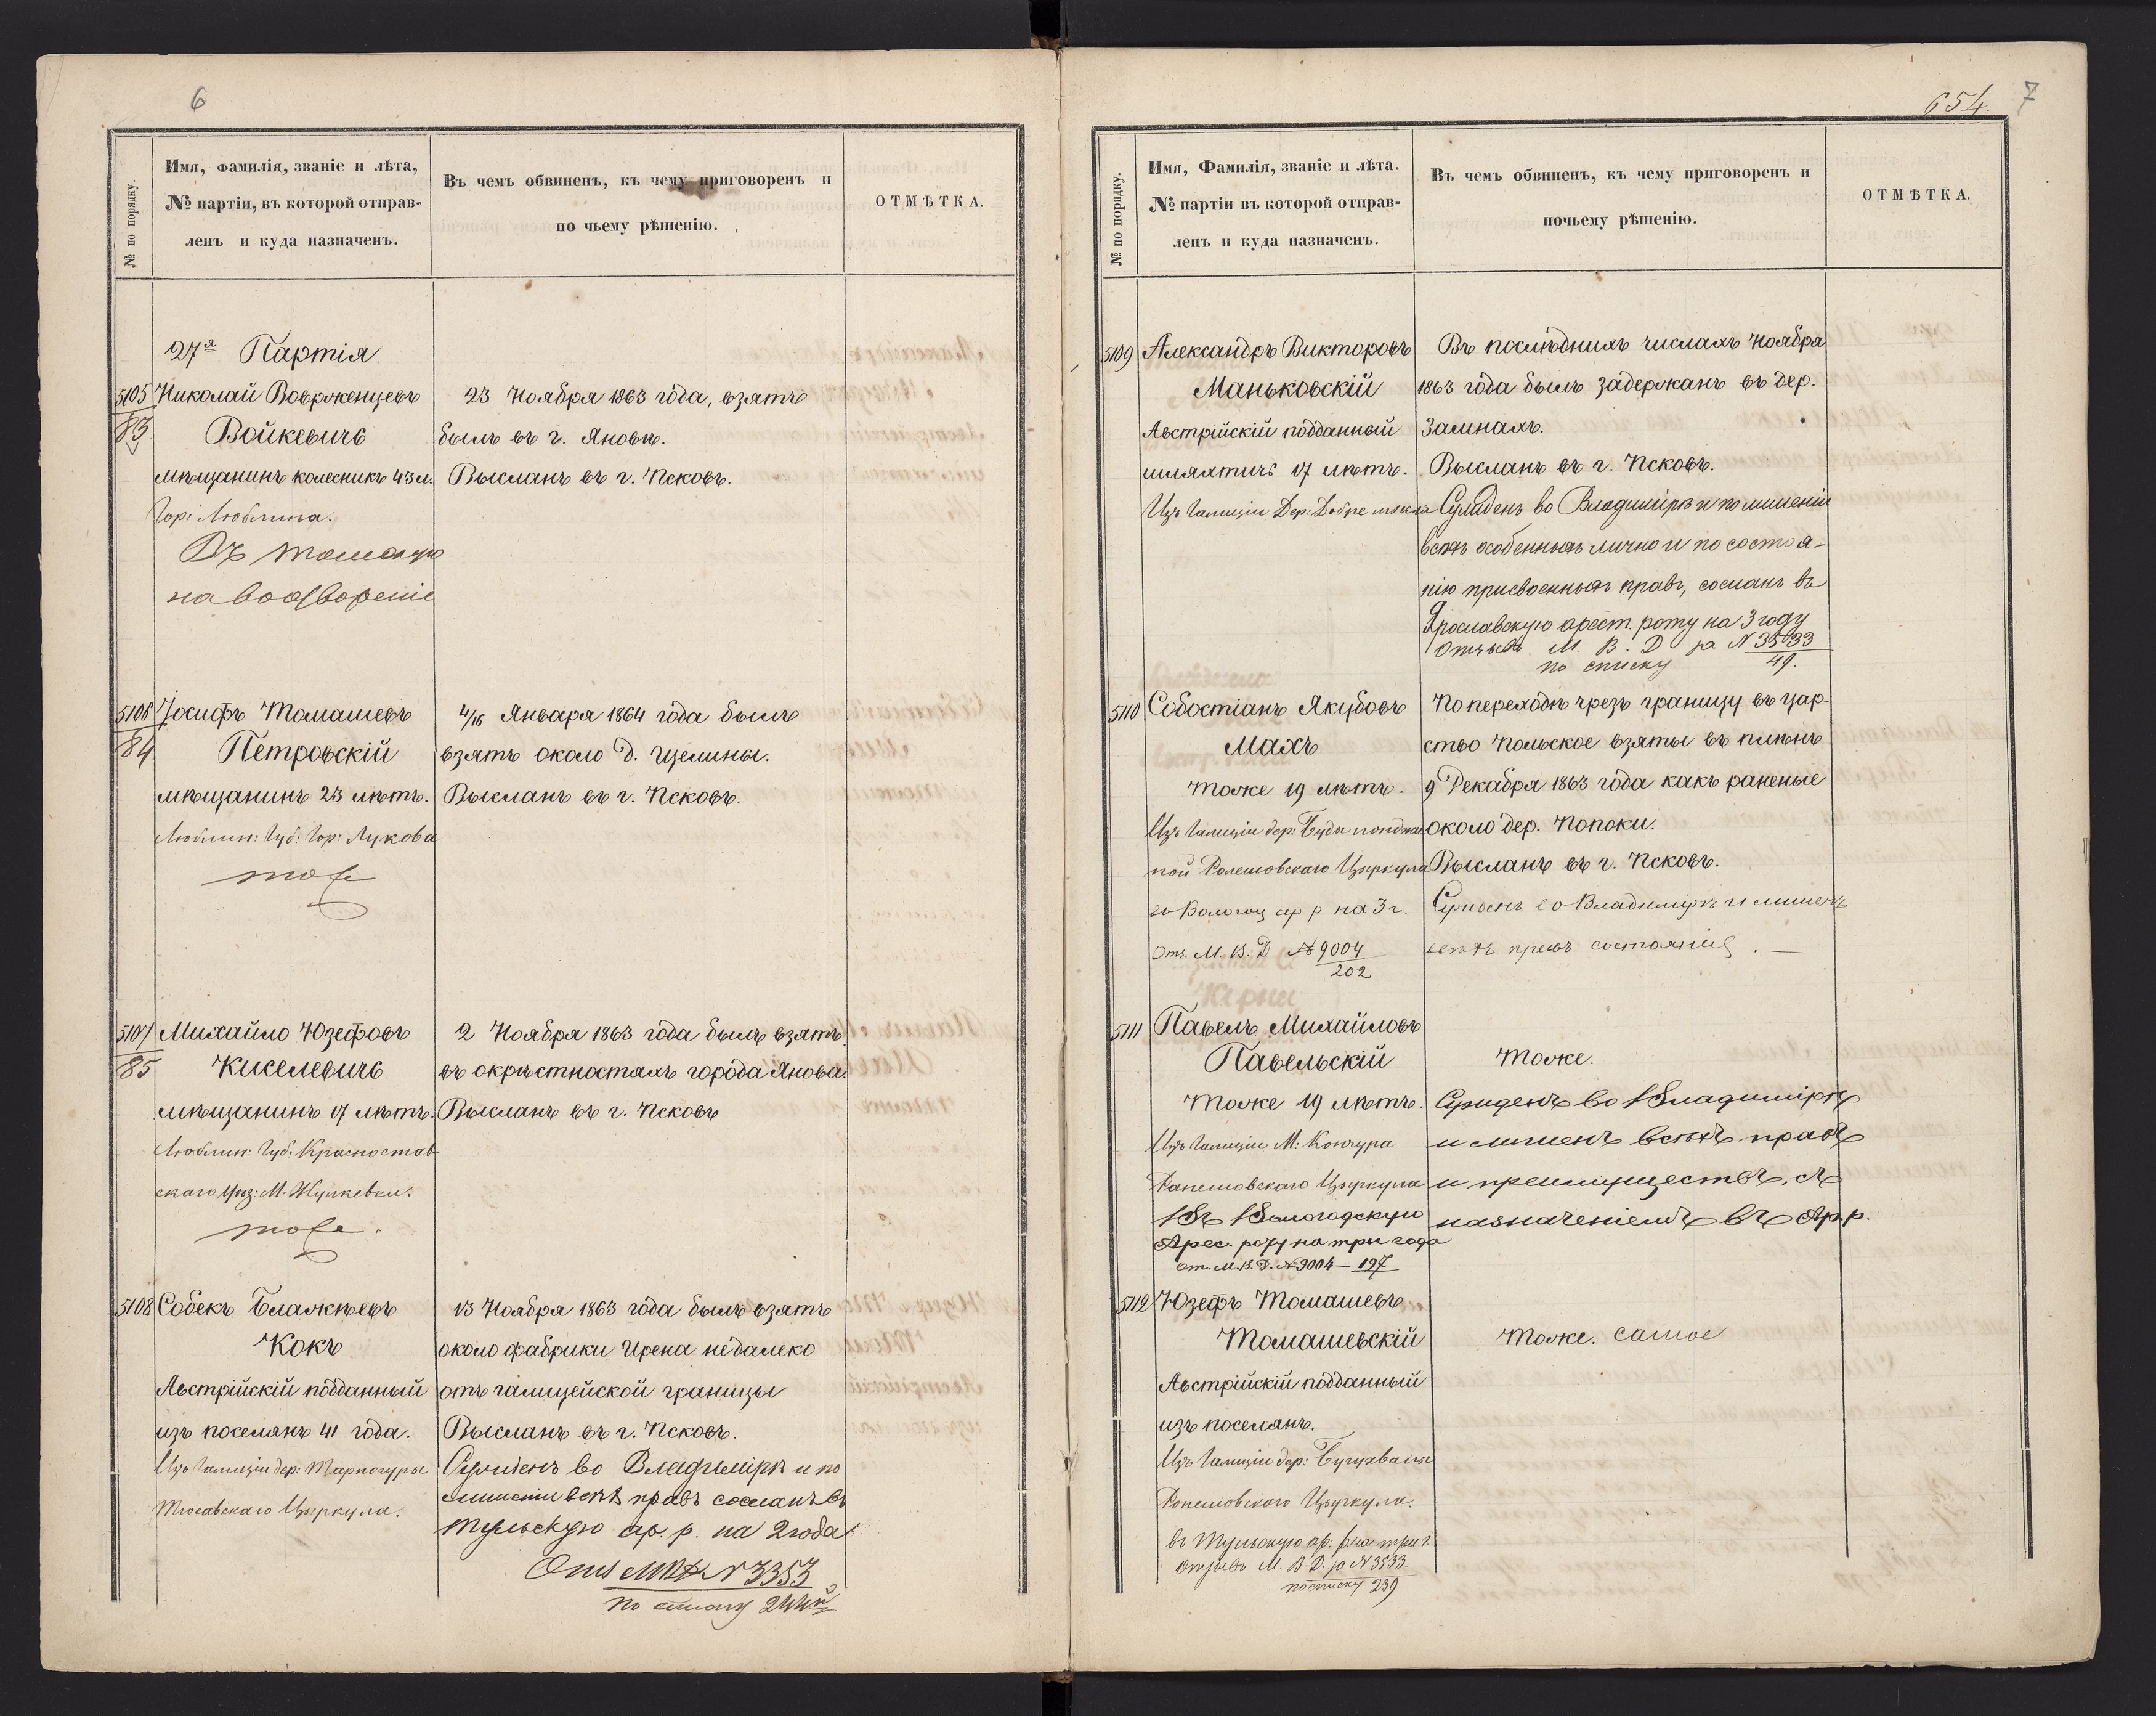 6
№ по порядку.
Имя, фамилія, званіе и лѣта,
№ партіи, въ которой отправ-
ленъ и куда назначенъ.
Въ чемъ обвиненъ, къ чему приговоренъ и
по чьему рѣшенію.
ОТМѢТКА.
27я Партія
5105 Николай Вовр​женцевъ
83 Войкевичъ
мѣщанинъ колесникъ 43 л.
Гор: Люблина.
Въ
на водвореніе
23 Ноября 1863 года, взятъ
былъ въ г. Яновѣ.
Высланъ въ г. Псковъ.
5106 Іосифъ Томашевъ
84 Петровскій
мѣщанинъ 23 лѣтъ.
Люблин: Губ: Гор: Лукова
тоже
4/16 Января 1864 года былъ
взятъ около д. Щелины.
Высланъ въ г. Псковъ.
5107 Михайло Юзефовъ
85 Киселевичъ
мѣщанинъ 17 лѣтъ.
Люблин: Губ: Красностав-
скаго Уѣз: М. Жулкевки.
тоже.
2 Ноября 1863 года былъ взятъ
въ окрѣстностяхъ города Янова.
Высланъ въ г. Псковъ
5108 Собекъ Блажѣевъ
Кокъ
Австрійскій подданный
изъ поселянъ 41 года.
Изъ Галиціи дер: Тарногуры
Цыркула.
13 Ноября 1863 года былъ взятъ
около фабрики Ирена недалеко
отъ галицейской границы
Высланъ въ г. Псковъ.
Сужденъ во Владимірѣ и по
лишеніи всѣхъ правъ сосланъ въ
Тульскую ар. р. на 2 года
Отз МВД N 3353
по списку 244й
654. 7
№ по порядку.
Имя, Фамилія, званіе и лѣта.
№ партіи въ которой отправ-
ленъ и куда назначенъ.
Въ чемъ обвиненъ, къ чему приговоренъ и
почьему рѣшенію.
ОТМѢТКА.
5109 Александръ Викторовъ
Маньковскій
Австрійскій подданный
шляхтичъ 17 лѣтъ.
Изъ Галиціи Дер: Добре
Въ послѣднихъ числахъ Ноября
1863 года былъ задержанъ въ дер.
Замнахъ.
Высланъ въ г. Псковъ.
Сужденъ во Владимірѣ и по лишеніи
всѣхъ особенныхъ лично и по состоя-
нію присвоенныхъ правъ, сосланъ въ
Ярославскую арест. роту на 3 году
Отзывъ М. В. Д за N 3533
по списку 49.
5110 Собостіанъ Якубовъ
Махъ
тоже 19 лѣтъ.
Изъ Галиціи дер: Буды
Цыркула
въ Вологод ар р на 3 г.
Отз. М. В. Д № 9004
202
По переходѣ чрезъ границу въ цар-
ство Польское взяты въ плѣнъ
9 Декабря 1863 года какъ раненые
около дер. Попоки.
Высланъ въ г. Псковъ.
Сужденъ во Владимірѣ и лишенъ
всѣхъ правъ состоянія. —
5111 Павелъ Михайловъ
Павельскій
тоже 19 лѣтъ.
Изъ Галиціи М: Кончура
Цыркула
Въ Вологодскую
Арес. роту на три года
От. М. В. Д. № 9004 — 197
тоже.
Сужденъ во Владимірѣ
и лишенъ всѣхъ правъ
и преимуществъ, съ
назначеніемъ въ Ар. р.
5112 Юзефъ Томашевъ
Томашевскій
Австрійскій подданный
изъ поселянъ.
Изъ Галиціи дер:
Цыркула.
въ Тульскую ар: р на три г.
отзывъ М. В. Д. за N 3533.
по списку 239
тоже. самое